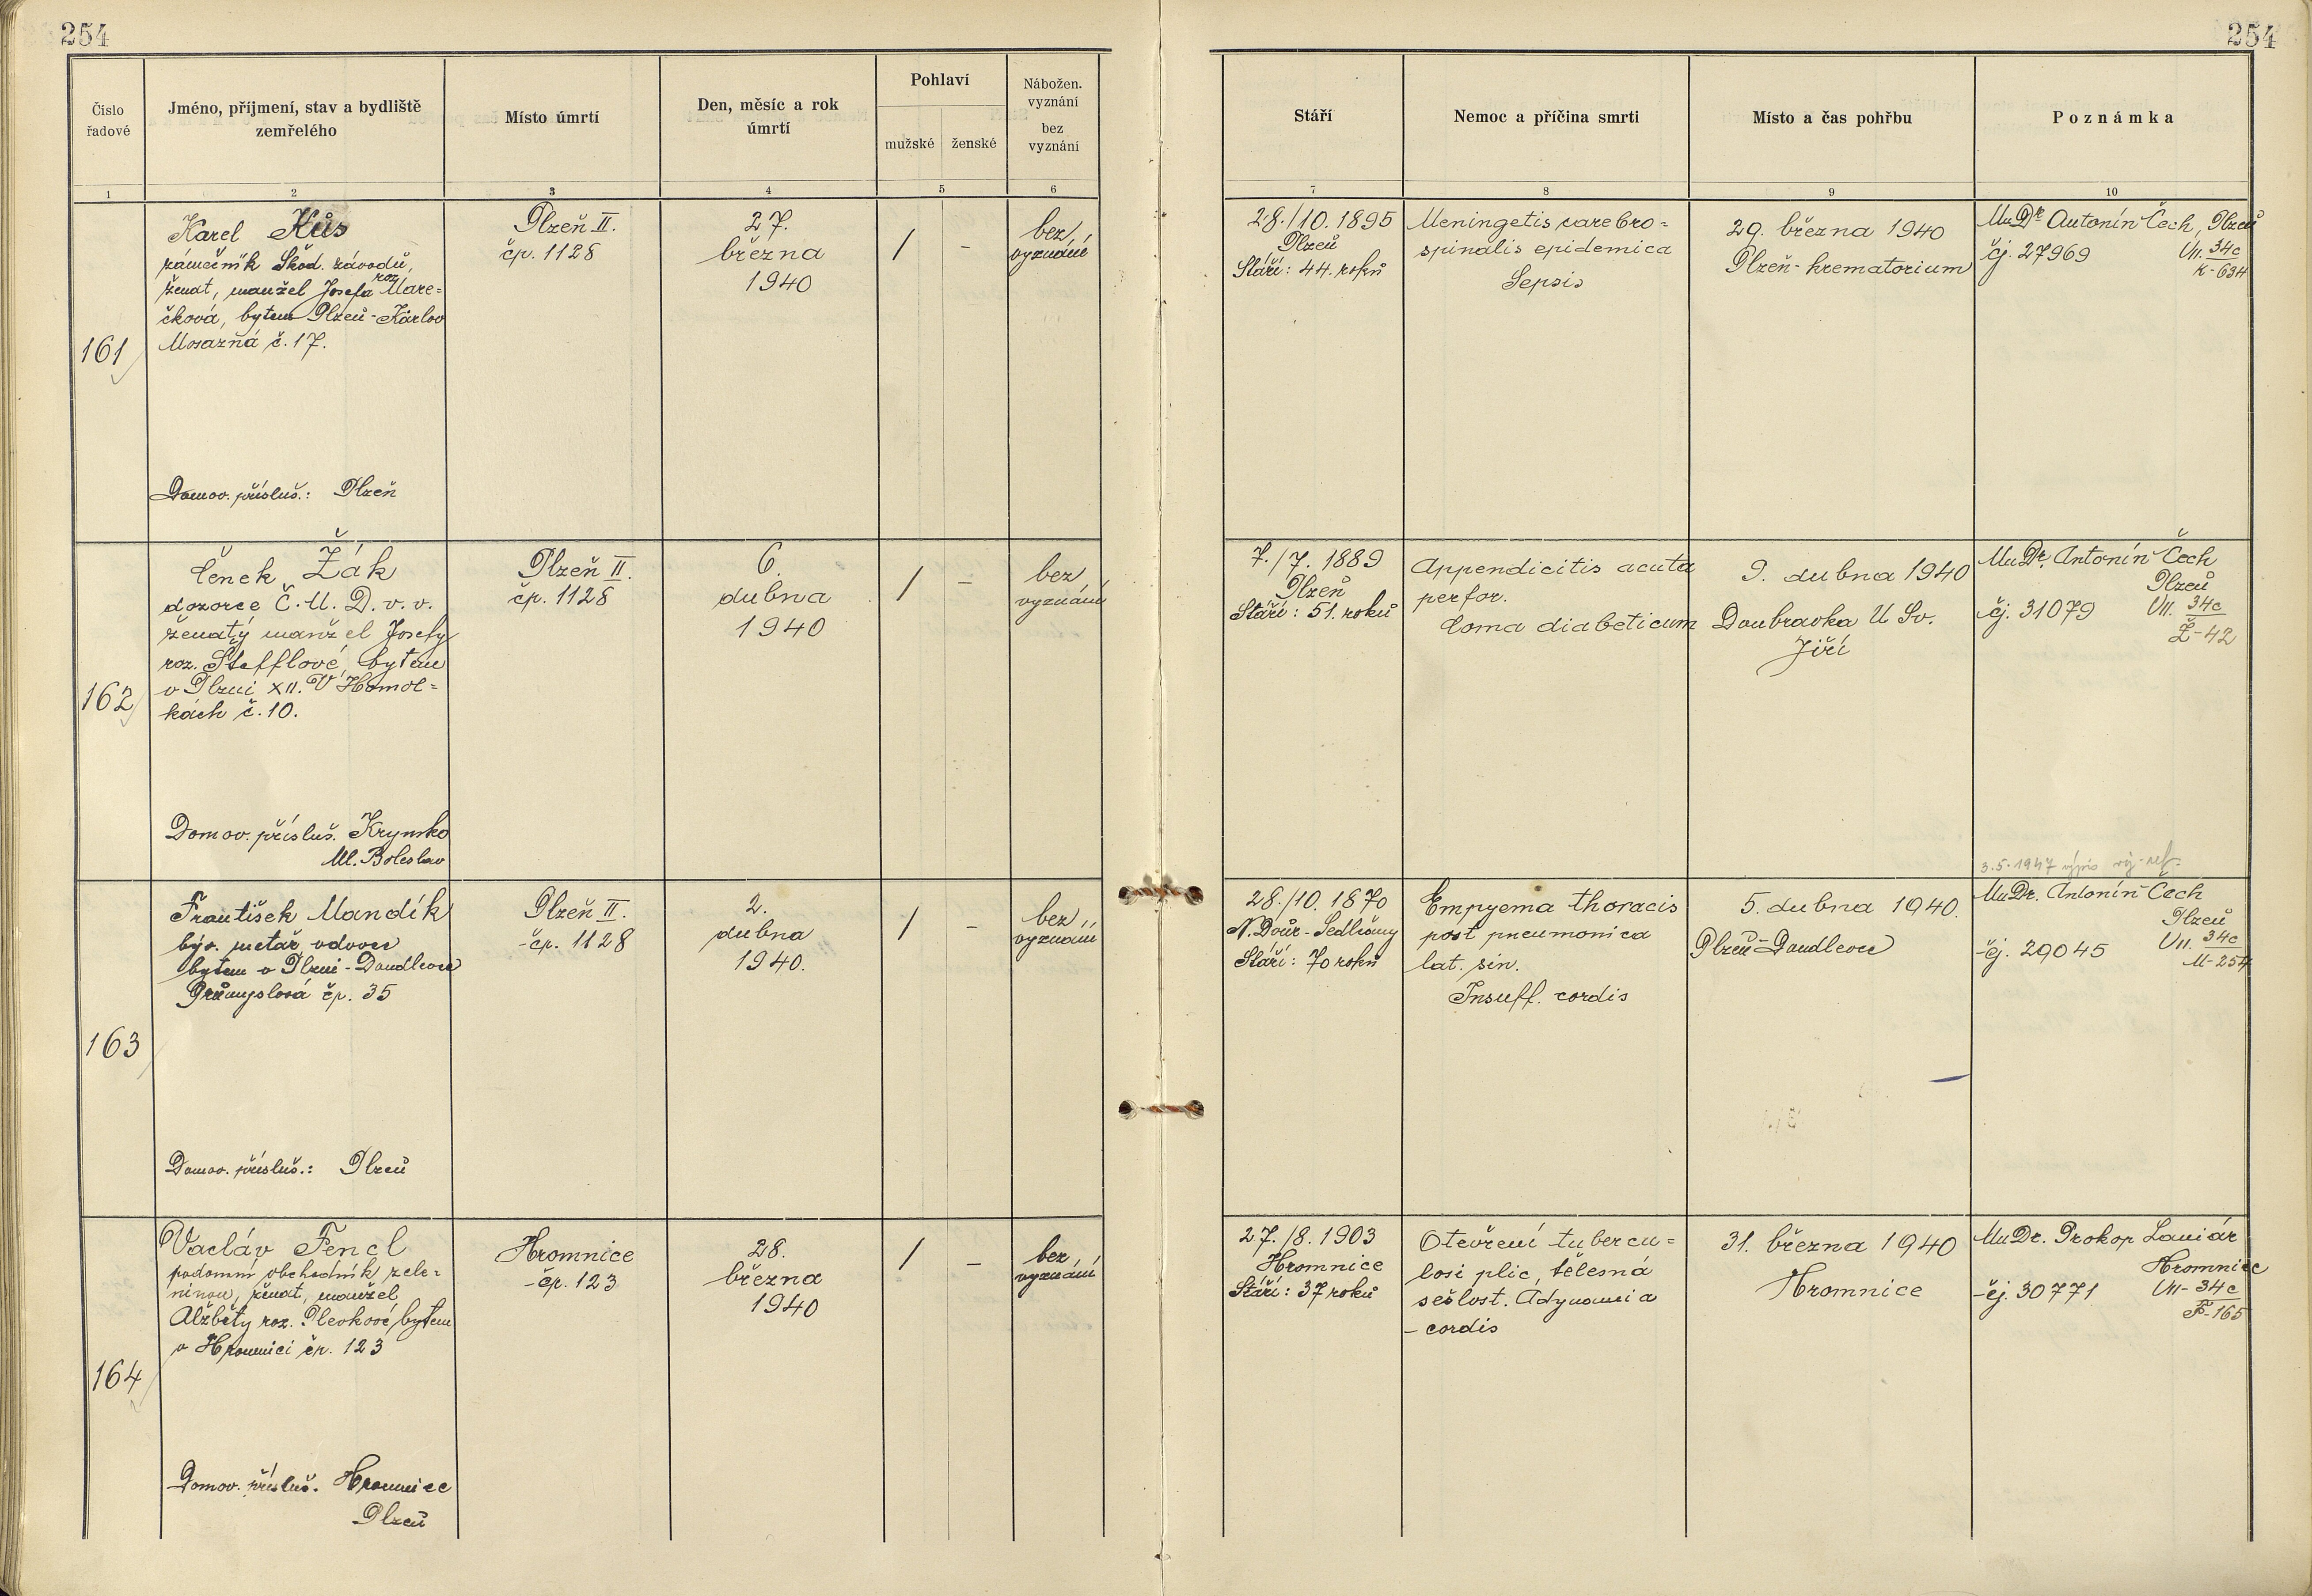 254
254
Číslo řadové
Jméno, příjmení, stav a bydliště zemřelého
Místo úmrtí
Den, měsíc a rok úmrtí
Pohlaví
mužské
ženské
Nábožen. vyznání
bez vyznání
Stáří
Nemoc a příčina smrti
Místo a čas pohřbu
Poznámka
1 2 3 4 5 6 7 8 9 10
161
Karel Kůs
zámečník Škod. závodů,
ženat, manžel Josefa roz. Mare=
čková, bytem Plzeň-Karlov
Mosazná č. 17.
Domov. přísluš.: Plzeň
Plzeň II.
čp. 1128
27.
března
1940
/ -
bez
vyznání
28./10. 1895
Plzeň
Stáří: 44. roků
Meningetis carebro=
spinalis epidemica
Sepsis
29. března 1940
Plzeň-krematorium
MuDr Antonín Čech, Plzeň
čj. 27969 VII. 34c
K-634
162
Čeněk Žák
dozorce Č.U.D. v. v.
ženatý manžel Josefy
roz. Štefflové, bytem
v Plzni XII. V Homol=
kách č. 10.
Domov. přísluš. Krynsko
Ml. Boleslav
Plzeň II.
čp. 1128
6.
dubna
1940
/ -
bez
vyznání
7./7. 1889
Plzeň
Stáří: 51. roků
Appendicitis acuta
perfor.
Coma diabeticum
9. dubna 1940
Doubravka U Sv.
Jiří
MuDr. Antonín Čech
Plzeň
čj. 31079 VII. 34c
Ž-42
3.5.1947 výpis
163
František Mandík
býv. metař vdovec
bytem v Plzni-Doudlevce
Průmyslová čp. 35
Domov. přísluš.: Plzeň
Plzeň II.
čp. 1128
2.
dubna
1940.
/ -
bez
vyznání
28./10. 1870
N. Dvůr-Sedlčany
Stáří: 70 roků
Empyema thoracis
post pneumonica
lat. sin.
Insuff. cordis
5. dubna 1940.
Plzeň-Doudlevce
MuDr. Antonín Čech
Plzeň
čj. 29045 VII. 34c
M-254
164
Vacláv Fencl
podomní obchodník zele=
ninou, ženat, manžel
Alžběty roz. Plevkové, bytem
v Hromnici čp. 123
Domov. přísluš. Hromnice
Plzeň
Hromnice
čp. 123
28.
března
1940
/ -
bez
vyznání
27./8. 1903
Hromnice
Stáří: 37 roků
Otevření tubercu=
losi plic, tělesná
sešlost. Adynamia
cordis
31. března 1940
Hromnice
MuDr. Prokop
Hromnice
čj. 30771 VII-34c
F-165